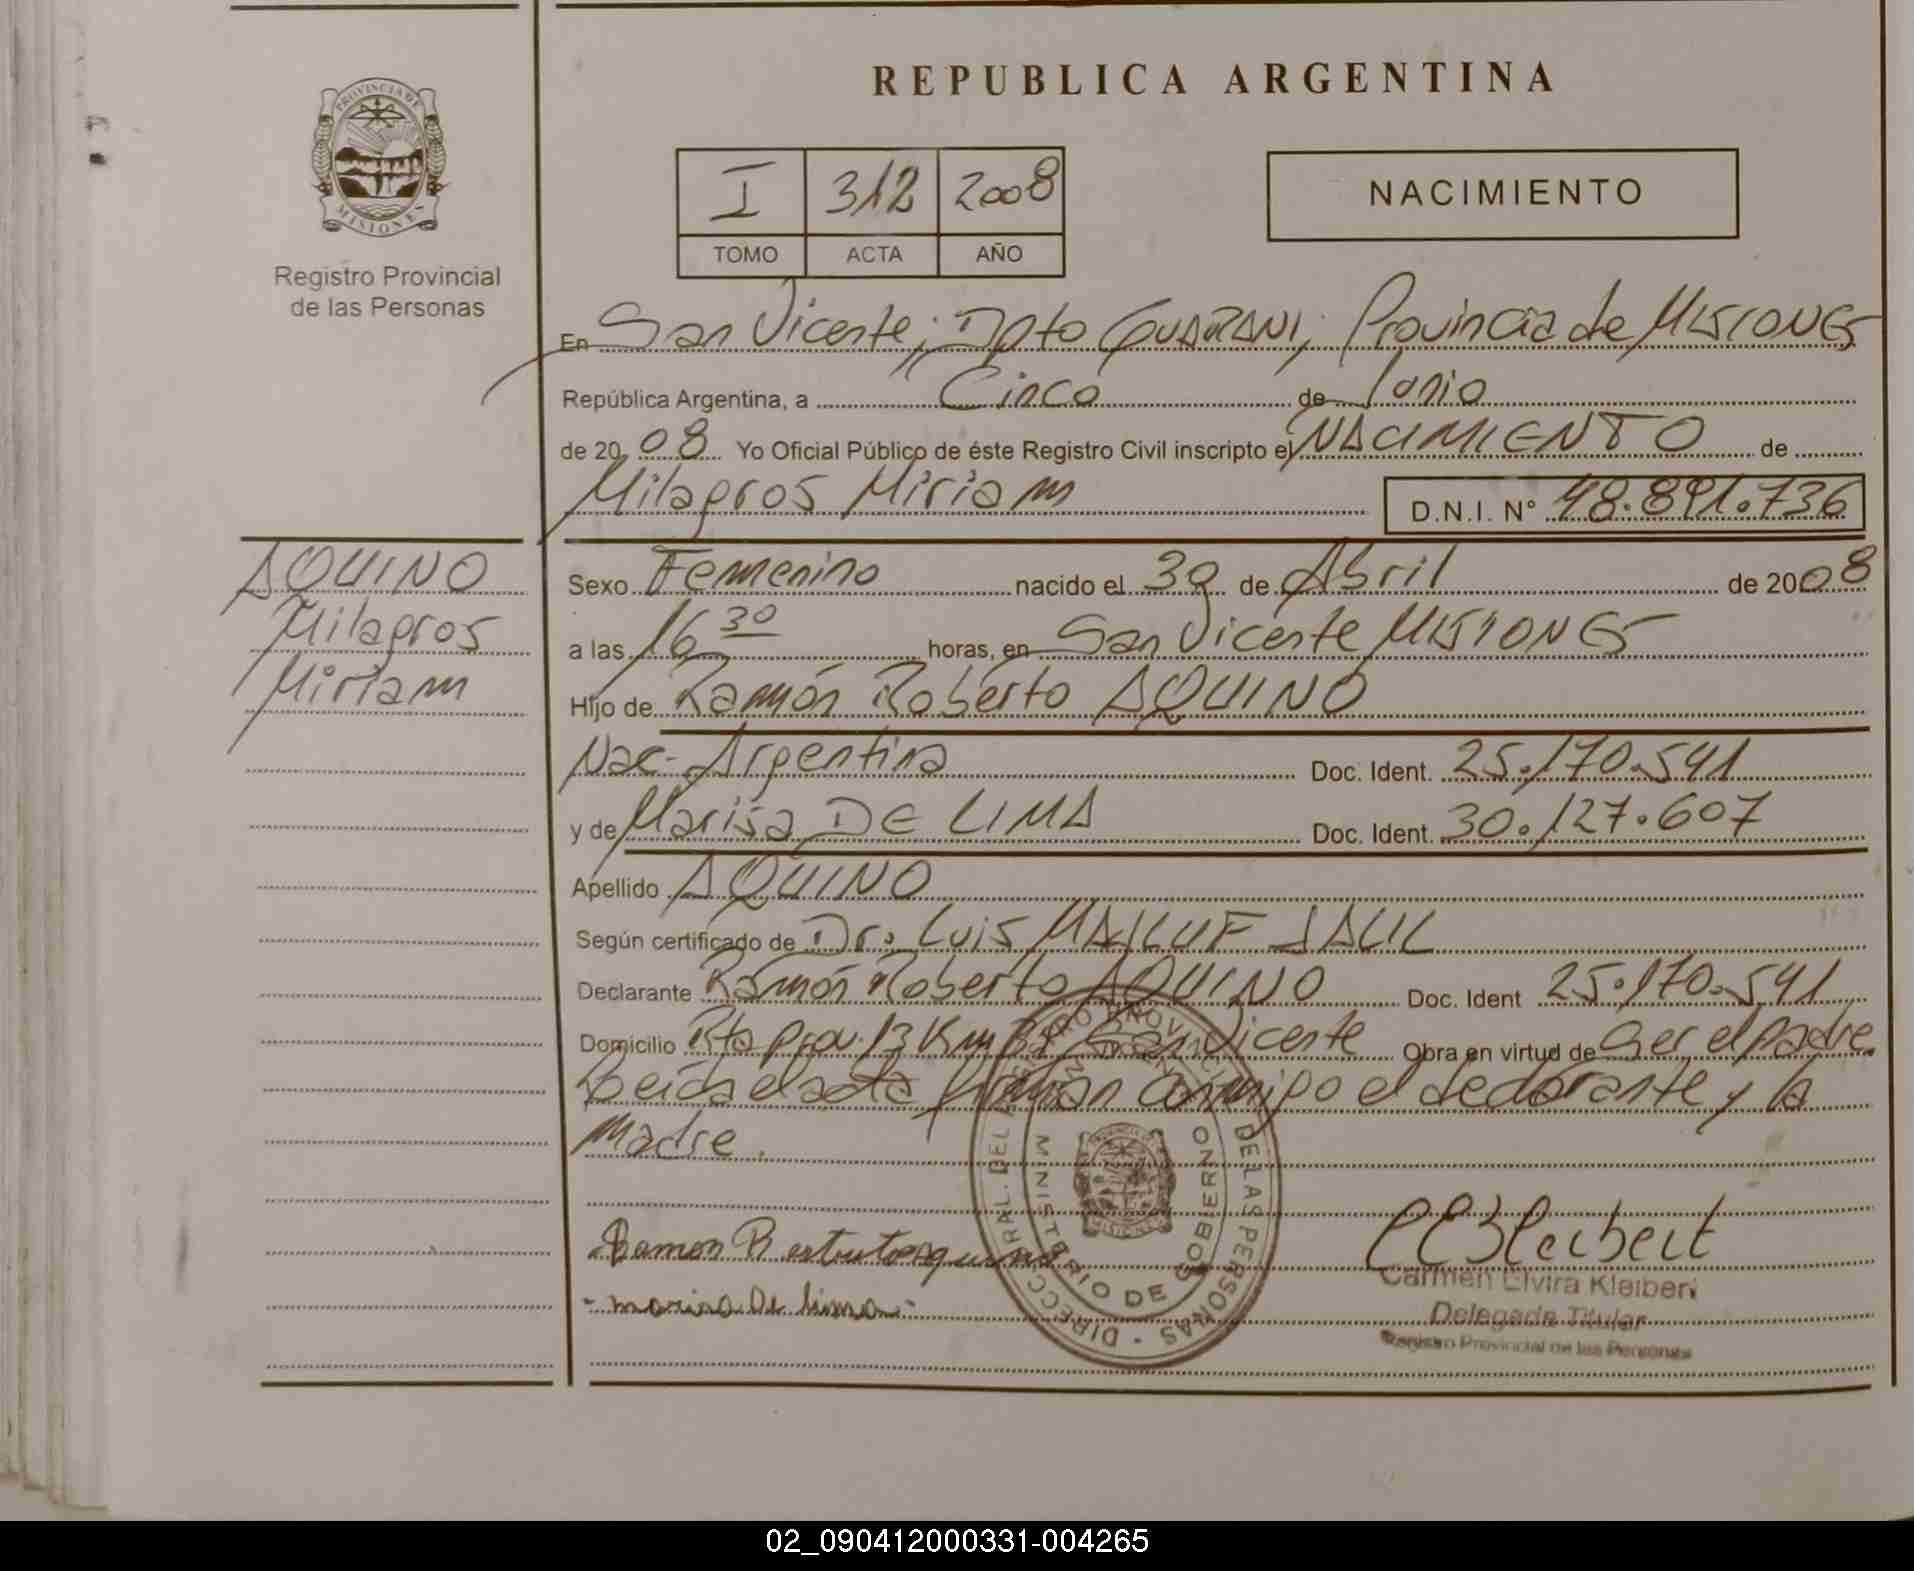 REPUBLICA ARGENTINA
PROVINCIA DE
MISIONES
Registro Provincial
de las Personas
I 312 2008
TOMO ACTA AÑO
NACIMIENTO
En San Vicente; Dpto GUARANI; Provincia de MISIONES
República Argentina, a Cinco de Junio
de 2008 Yo Oficial Público de éste Registro Civil inscripto el NACIMIENTO de
Milagros Miriam D.N.I. N° 48.891.736
AQUINO
Milagros
Miriam
Sexo Femenino nacido el 30 de Abril de 2008
a las 16 30 horas, en San Vicente MISIONES
Hijo de Ramón Roberto AQUINO
Nac- Argentina Doc. Ident. 25.170.541
y de Marisa DE LIMA Doc. Ident. 30.127.607
Apellido AQUINO
Según certificado de Dr. Luis MALUF JALIL
Declarante Ramón Roberto AQUINO Doc. Ident 25.170.541
Domicilio Rta prov. 13 Km San Vicente Obra en virtud de Ser el padre.
Leída el acta firman conmigo el declarante y la
Madre.
Ramon Roberto Aquino
marisa De lima
DIRECC. GRAL. DEL REGISTRO PROVINCIAL DE LAS PERSONAS
MINISTERIO DE GOBIERNO
Carmen Elvira Kleibert
Delegada Titular
Registro Provincial de las Personas
02_090412000331-004265